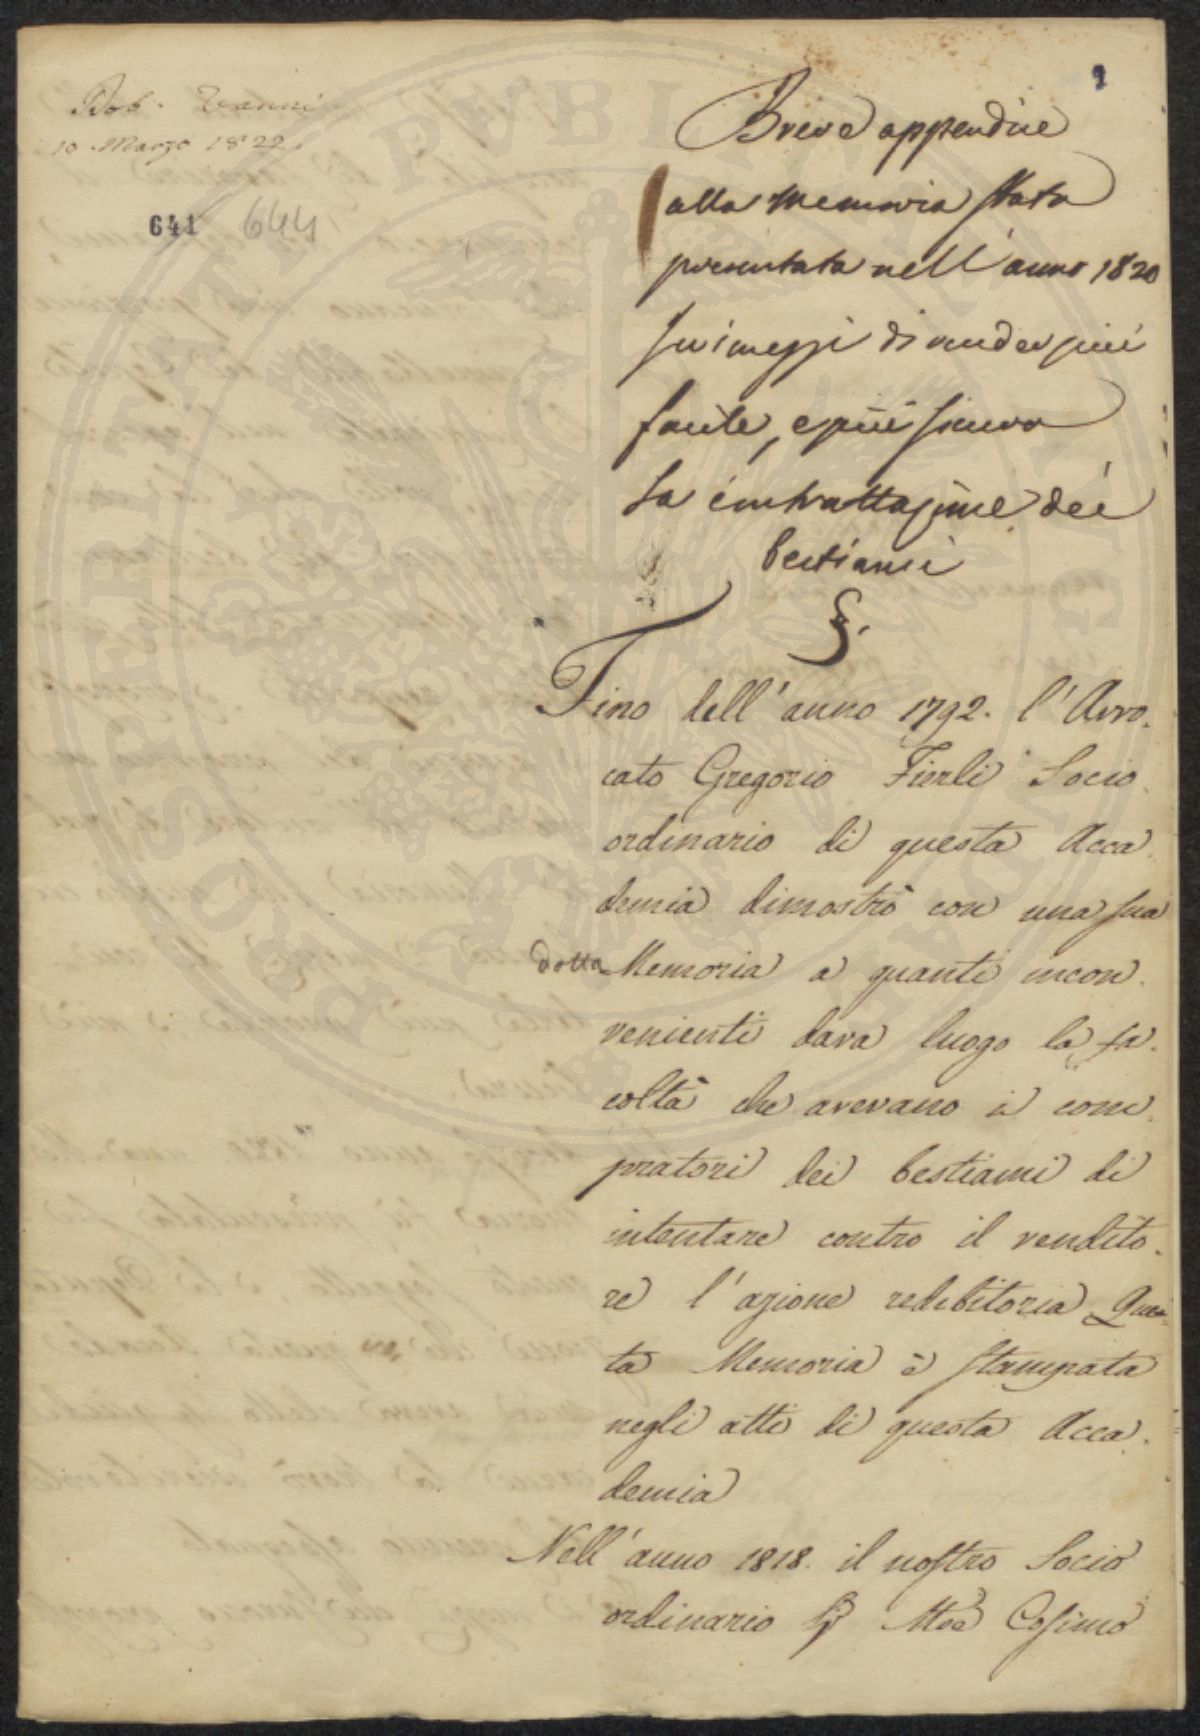 Dob. Vanni
10 Marzo 1822
641 644
1
Breve appendice
alla Memoria stata
presentata nell'anno 1820
sui mezzi di render più
facile, e più sicura
la contrattazione dei
bestiami
§.
Fino dell'anno 1792. l'Avvo-
cato Gregorio Fierli Socio
ordinario di questa Acca-
demia dimostrò con una sua
dotta Memoria a quanti incon-
venienti dava luogo la fa-
coltà che avevano i com-
pratori dei bestiami di
intentare contro il vendito-
re l'azione redibitoria Ques-
ta Memoria è stampata
negli atti di questa Acca-
demia
Nell'anno 1818. il nostro Socio
ordinario Cosimo
PROSPERITATI PVBLICAE